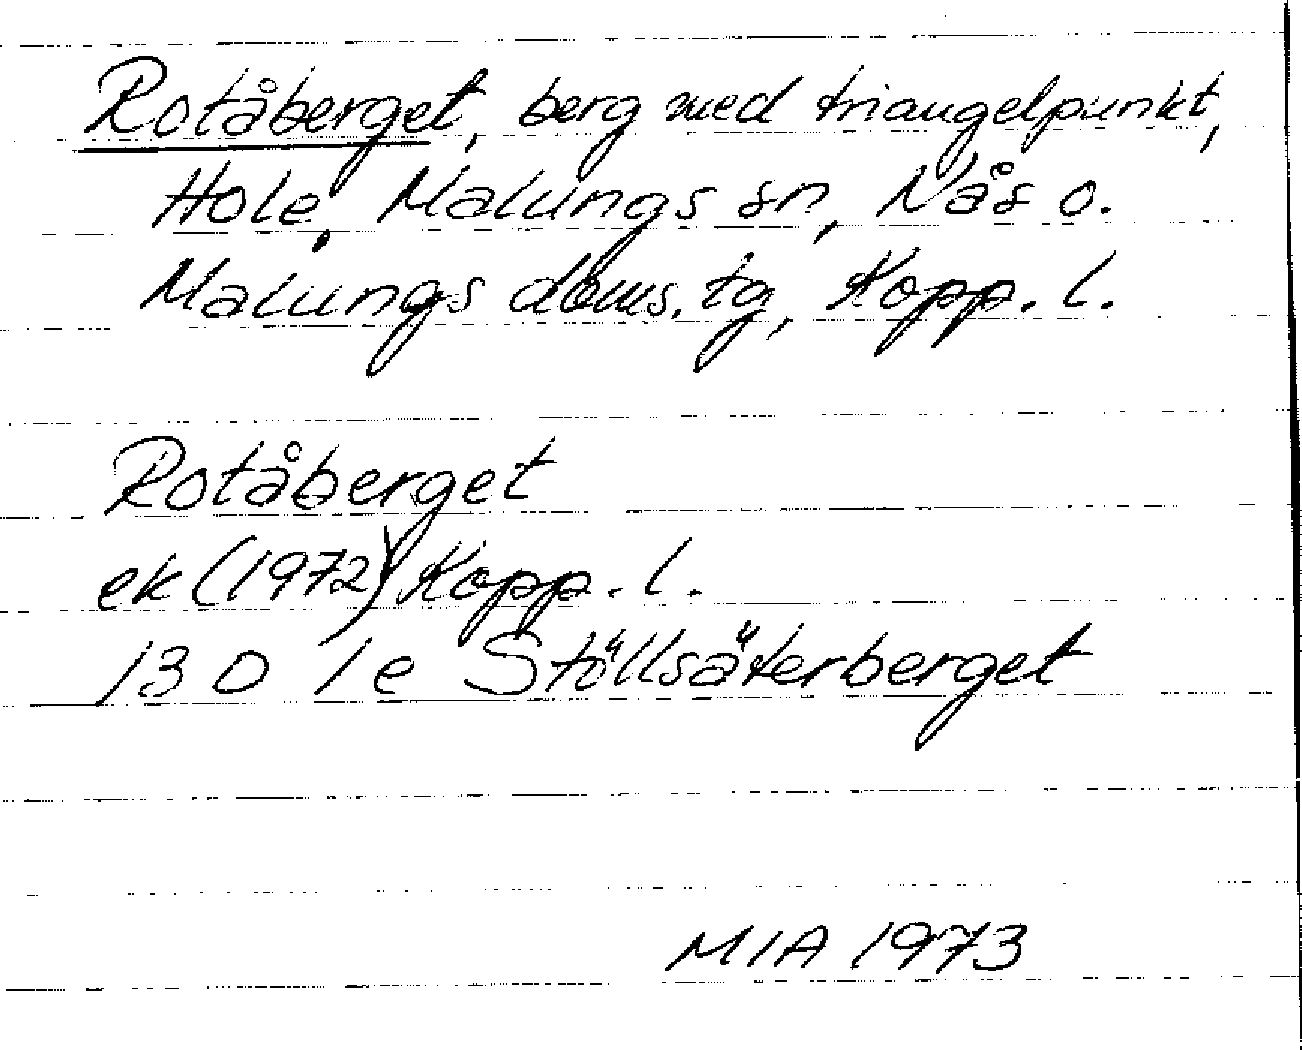 Rotåberget, berg med triangelpunkt,
Hole, Malungs sn, Nås o.
Malungs doms. tg, Kopp. l.
Rotåberget
ek (1972) Kopp. l.
13 D 1e Stöllsäterberget
MIA 1973